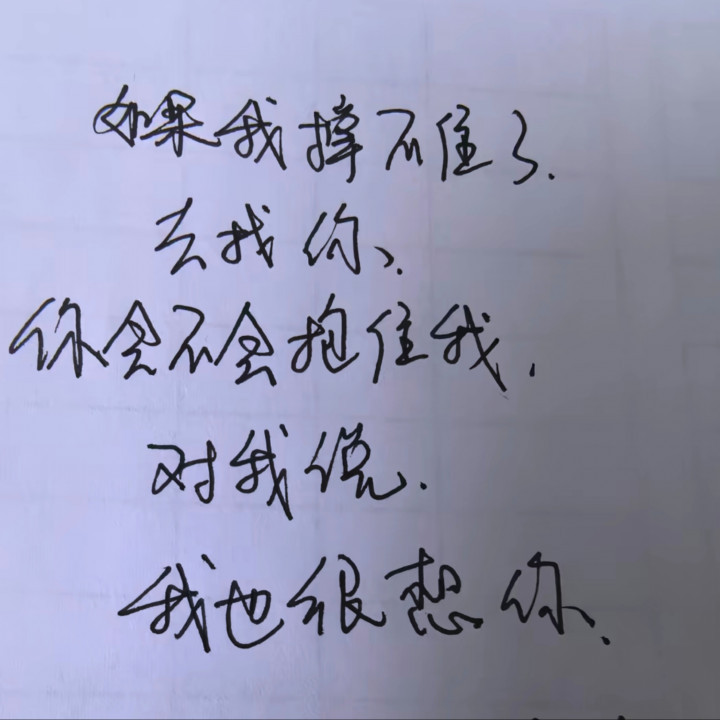 如果我撑不住了.
去找你、
你会不会抱住我.
对我说.
我也很想你、